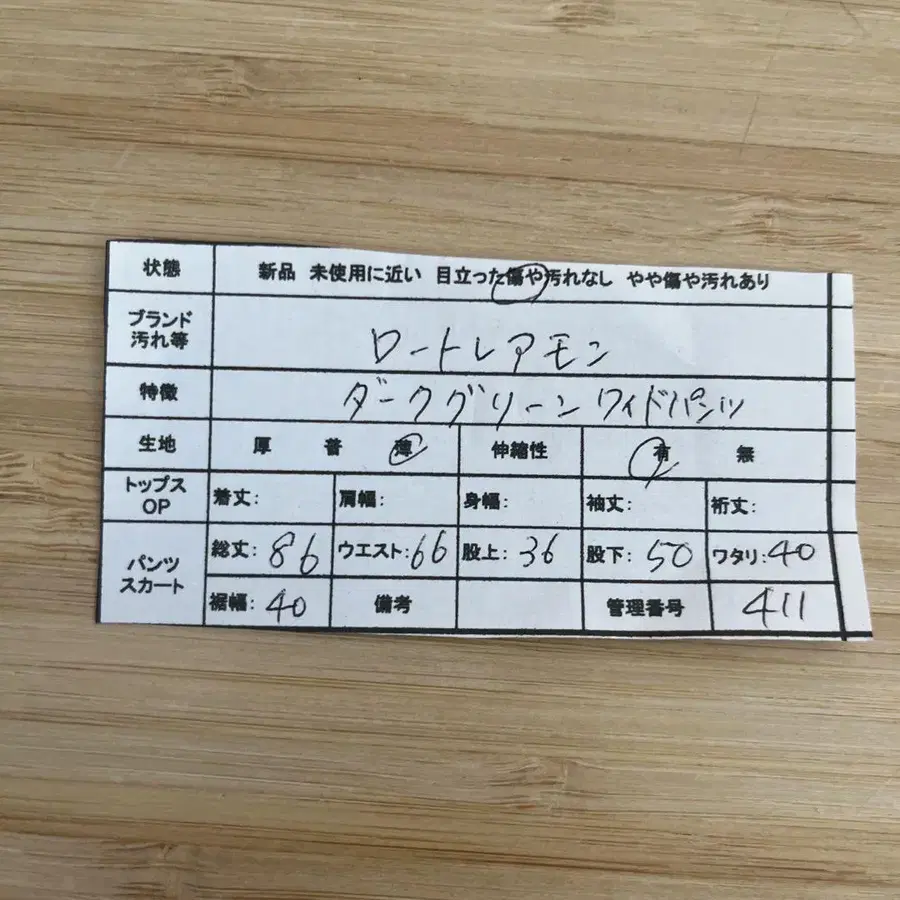 状態 新品 未使用に近い 目立った傷や汚れなし やや傷や汚れあり
ブランド
汚れ等
ロートレアモン
特徴 ダークグリーン ワイドパンツ
生地 厚 普 薄 伸縮性 有 無
トップス
OP
着丈: 肩幅: 身幅: 袖丈: 裄丈:
パンツ
スカート
総丈:86 ウエスト:66 股上:36 股下:50 ワタリ:40
裾幅:40 備考 管理番号 411